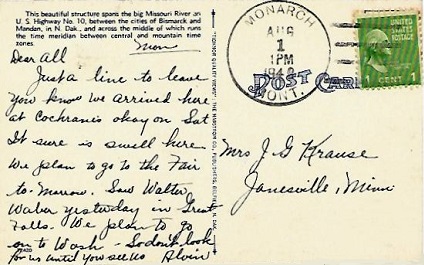 This beautiful structure spans the big Missouri River on
U. S. Highway No. 10, between the cities of Bismarck and
Mandan, in N. Dak., and across the middle of which runs
time meridian between central and mountain time
zones.
Mon
Dear All
Just a line to leave
you know we arrived here
at Cochranis okay on Sat
It sure is swell here
We plan to go to the Fair
to-morrow. Saw Walter
Waber yesterday in Great
Falls. We plan to go
on to Wash - So don't look
for us until you see us Alvin
MONARCH
AUG
1
1PM
MONT.
POST CARD
UNITED
STATES
POSTAGE
1 CENT 1
Mrs J. G Krause
Janesville, Minn